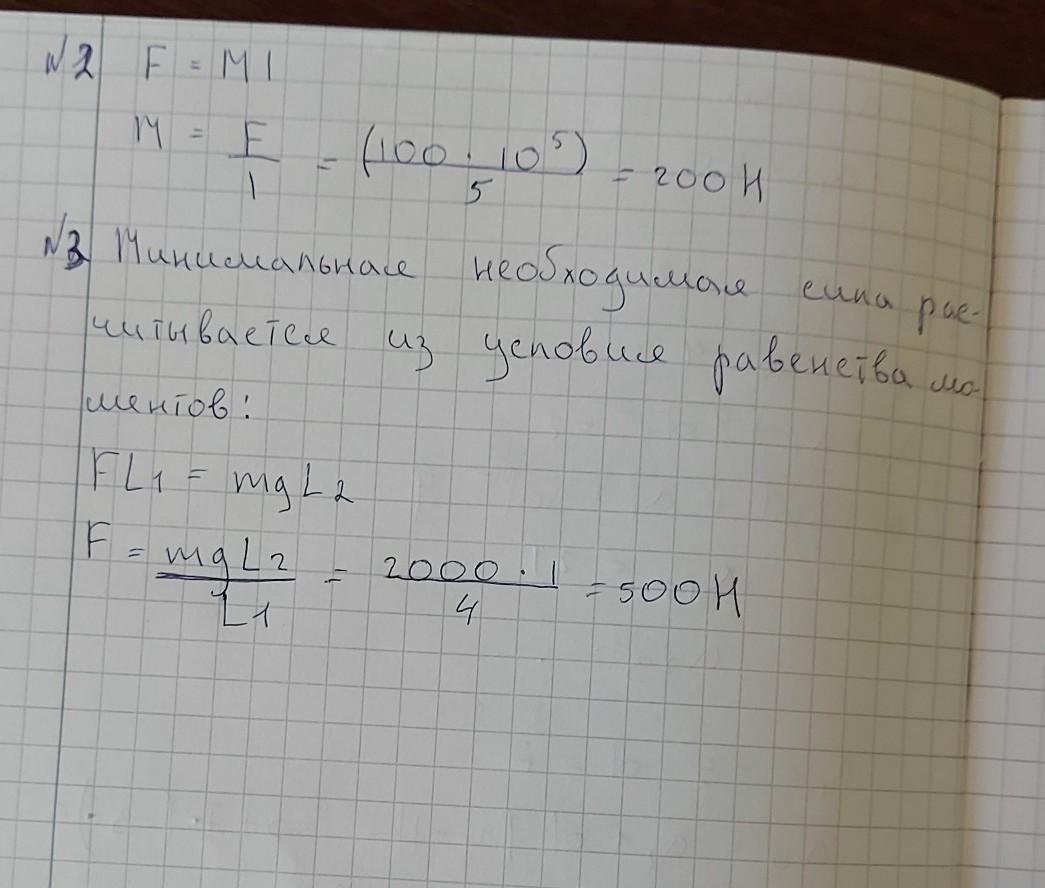 №2 F = M1
M = F/1 = (100 · 10⁵)/5 = 200 Н
№3 Минимальная необходимая сила рас-
читывается из условия равенства мо-
ментов:
FL1 = mgL2
F = mgL2/L1 = 2000 · 1/4 = 500 Н